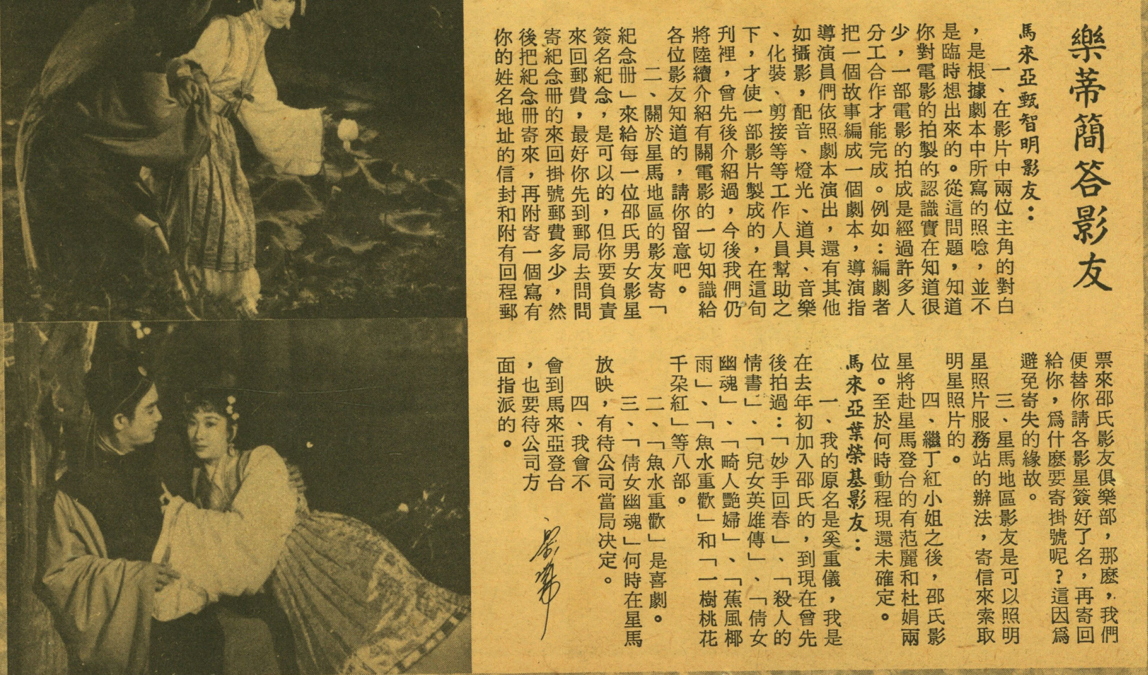 樂蒂簡答影友
馬來亞甄智明影友：
一、在影片中兩位主角的對白
，是根據劇本中所寫的照唸，並不
是臨時想出來的。從這問題，知道
你對電影的拍製的認識實在知道很
少，一部電影的拍成是經過許多人
分工合作才能完成。例如：編劇者
把一個故事編成一個劇本，導演指
導演員們依照劇本演出，還有其他
如攝影，配音、燈光、道具、音樂
、化裝、剪接等等工作人員幫助之
下，才使一部影片製成的，在這旬
刊裡，曾先後介紹過，今後我們仍
將陸續介紹有關電影的一切知識給
各位影友知道的，請你留意吧。
二、關於星馬地區的影友寄「
紀念冊」來給每一位邵氏男女影星
簽名紀念，是可以的，但你要負責
來回郵費，最好你先到郵局去問問
寄紀念冊的來回掛號郵費多少，然
後把紀念冊寄來，再附寄一個寫有
你的姓名地址的信封和附有回程郵
票來邵氏影友俱樂部，那麽，我們
便替你請各影星簽好了名，再寄回
給你，爲什麽要寄掛號呢？這因爲
避免寄失的緣故。
三、星馬地區影友是可以照明
星照片服務站的辦法，寄信來索取
明星照片的。
四、繼丁紅小姐之後，邵氏影
星將赴星馬登台的有范麗和杜娟兩
位。至於何時動程現還未確定。
馬來亞葉榮基影友：
一、我的原名是奚重儀，我是
在去年初加入邵氏的，到現在曾先
後拍過：「妙手回春」、「殺人的
情書」、「兒女英雄傳」、「倩女
幽魂」、「畸人艷婦」、「蕉風椰
雨」、「魚水重歡」和「一樹桃花
千朶紅」等八部。
二、「魚水重歡」是喜劇。
三、「倩女幽魂」何時在星馬
放映，有待公司當局决定。
四、我會不
會到馬來亞登台
，也要待公司方
面指派的。
樂蒂